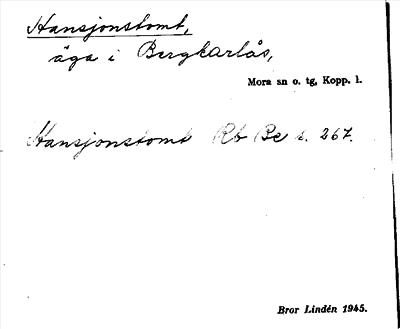 Hansjonstomt,
äga i Bergkarlås,
Mora sn o. tg, Kopp. l.
Hansjonstomt Rb Be s. 267.
Bror Lindén 1945.